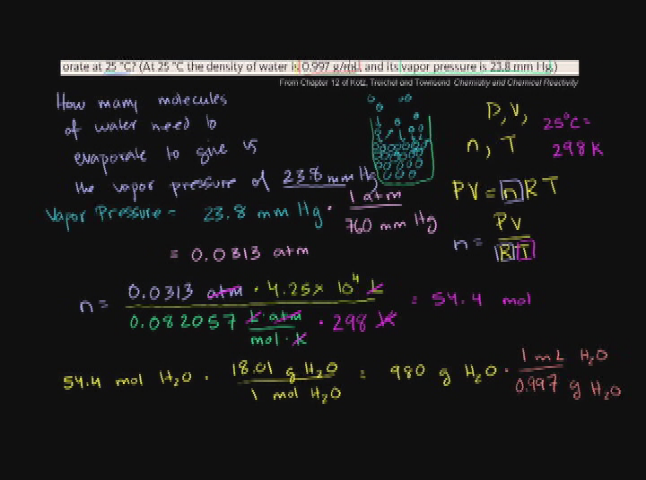 orate at 25 °C? (At 25 °C the density of water is 0.997 g/mL, and its vapor pressure is 23.8 mm Hg.)
From Chapter 12 of Kotz, Treichel and Townsend Chemistry and Chemical Reactivity
How many molecules
of water need to
evaporate to give us
the vapor pressure of 23.8 mm Hg
P, V,
n, T
25°C =
298 K
PV = nRT
n = PV / RT
Vapor Pressure = 23.8 mm Hg · 1 atm / 760 mm Hg
= 0.0313 atm
n = 0.0313 atm · 4.25 × 10⁴ L / 0.082057 L·atm / mol·K · 298 K = 54.4 mol
54.4 mol H₂O · 18.01 g H₂O / 1 mol H₂O = 980 g H₂O · 1 mL H₂O / 0.997 g H₂O